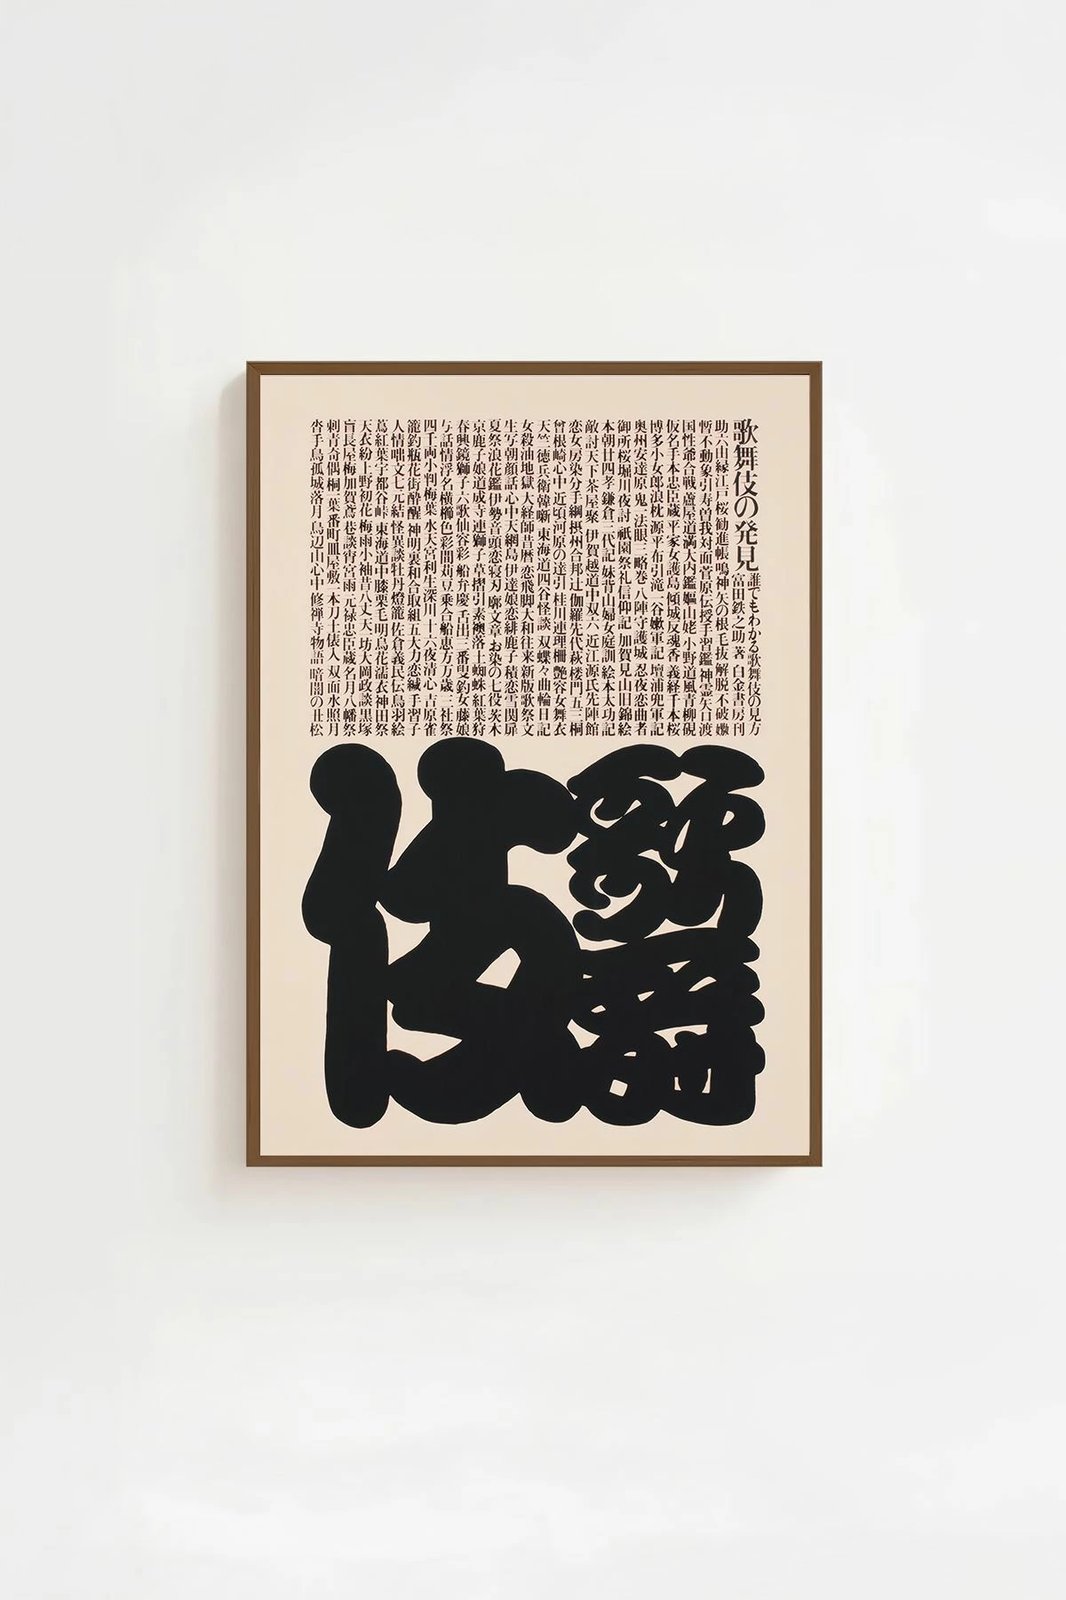 歌舞伎の発見
誰でもわかる歌舞伎の見方
富田鉄之助 著 白金書房刊
助六由縁江戸桜 勧進帳 鳴神 矢の根 毛抜 解脱 不破 嫐
暫 不動 象引 寿曽我対面 菅原伝授手習鑑 神霊矢口渡
国性爺合戦 蘆屋道満大内鑑 嫗山姥 小野道風青柳硯
仮名手本忠臣蔵 平家女護島 傾城反魂香 義経千本桜
博多小女郎浪枕 源平布引滝 一谷嫩軍記 壇浦兜軍記
奥州安達原 鬼一法眼三略巻 八陣守護城 忍夜恋曲者
御所桜堀川夜討 祇園祭礼信仰記 加賀見山旧錦絵
本朝廿四孝 鎌倉三代記 妹背山婦女庭訓 絵本太功記
敵討天下茶屋聚 伊賀越道中双六 近江源氏先陣館
恋女房染分手綱 摂州合邦辻 伽羅先代萩 楼門五三桐
曽根崎心中 近頃河原の達引 桂川連理柵 艶容女舞衣
天竺徳兵衛韓噺 東海道四谷怪談 双蝶々曲輪日記
女殺油地獄 大経師昔暦 恋飛脚大和往来 新版歌祭文
生写朝顔話 心中天網島 伊達娘恋緋鹿子 積恋雪関扉
夏祭浪花鑑 伊勢音頭恋寝刃 廓文章 お染の七役 茨木
京鹿子娘道成寺 連獅子 草摺引 素襖落 土蜘蛛 紅葉狩
春興鏡獅子 六歌仙容彩 船弁慶 舌出三番叟 釣女 藤娘
与話情浮名横櫛 色彩間苅豆 乗合船恵方万歳 三社祭
四千両小判梅葉 水天宮利生深川 十六夜清心 吉原雀
籠釣瓶花街酔醒 神明恵和合取組 五大力恋緘 手習子
人情噺文七元結 怪異談牡丹燈籠 佐倉義民伝 鳥羽絵
蔦紅葉宇都谷峠 東海道中膝栗毛 明烏花濡衣 神田祭
天衣紛上野初花 梅雨小袖昔八丈 天一坊大岡政談 黒塚
盲長屋梅加賀鳶 巷談宵宮雨 元禄忠臣蔵 名月八幡祭
刺青奇偶 桐一葉 番町皿屋敷 一本刀土俵入 双面水照月
沓手鳥孤城落月 鳥辺山心中 修禅寺物語 暗闇の丑松
歌舞伎